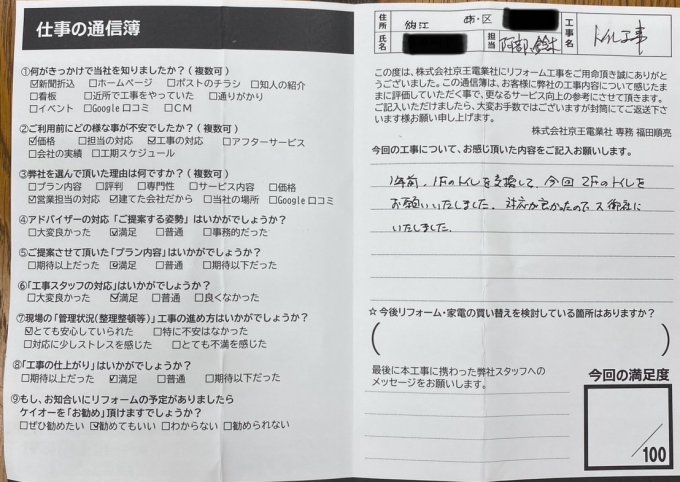 仕事の通信簿
①何がきっかけで当社を知りましたか？(複数可)
☑新聞折込 □ホームページ □ポストのチラシ □知人の紹介
□看板 □近所で工事をやっていた □通りがかり
□イベント □Google口コミ □CM
②ご利用前にどの様な事が不安でしたか？(複数可)
☑価格 □担当の対応 ☑工事の対応 □アフターサービス
□会社の実績 □工期スケジュール
③弊社を選んで頂いた理由は何ですか？(複数可)
□プラン内容 □評判 □専門性 □サービス内容 □価格
☑営業担当の対応 ☑建てた会社だから □当社の場所 □Google口コミ
④アドバイザーの対応「ご提案する姿勢」はいかがでしょうか？
□大変良かった ☑満足 □普通 □事務的だった
⑤ご提案させて頂いた「プラン内容」はいかがでしょうか？
□期待以上だった ☑満足 □普通 □期待以下だった
⑥「工事スタッフの対応」はいかがでしょうか？
□大変良かった ☑満足 □普通 □良くなかった
⑦現場の「管理状況(整理整頓等)」工事の進め方はいかがでしょうか？
☑とても安心していられた □特に不安はなかった
□対応に少しストレスを感じた □とても不満を感じた
⑧「工事の仕上がり」はいかがでしょうか？
□期待以上だった ☑満足 □普通 □期待以下だった
⑨もし、お知合いにリフォームの予定がありましたら
ケイオーを「お勧め」頂けますでしょうか？
□ぜひ勧めたい ☑勧めてもいい □わからない □勧められない
住所 狛江 市・区
氏名 担当 阿部、鈴木
工事名 トイレ工事
この度は、株式会社京王電業社にリフォーム工事をご用命頂き誠にありがと
うございました。この通信簿は、お客様に弊社の工事内容について感じたま
まに評価していただく事で、更なるサービス向上の参考にさせて頂きます。
ご記入いただけましたら、大変お手数ではございますが封筒にてご返送下さ
います様お願い申し上げます。
株式会社京王電業社 専務 福田順亮
今回の工事について、お感じ頂いた内容をご記入お願いします。
1年前、1Fのトイレを交換して、今回2Fのトイレを
お願いいたしました。対応が良かったので又御社に
いたしました。
☆今後リフォーム・家電の買い替えを検討している箇所はありますか？
最後に本工事に携わった弊社スタッフへの
メッセージをお願いします。
今回の満足度
/100